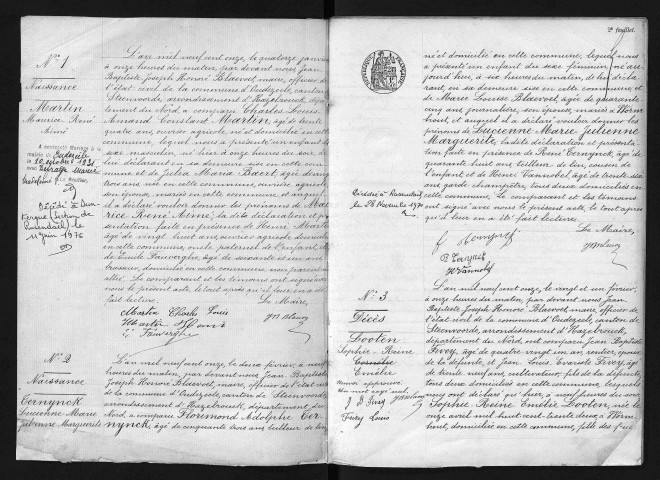 N° 1
Naissance
Martin
Maurice René
Aimé
A contracté mariage à la
mairie de Oudezeele
le 10 octobre 1931
avec
Décédé à Dun-
kerque (section de
Rosendaël) le
11 juin 1976
L'an mil neuf cent onze, le quatorze janvier
à onze heures du matin, par devant nous Jean
Baptiste Joseph Honoré Blaevoet, maire, officier de
l'état civil de la commune d'Oudezeele, canton
de Steenvoorde, arrondissement d'Hazebrouck, dépar-
tement du Nord, a comparu Charles Louis
Amand Constant Martin, âgé de trente
quatre ans, ouvrier agricole, né et domicilié en cette
commune, lequel nous a présenté un enfant du sexe
masculin, né hier à onze heures du soir, de
lui déclarant en sa demeure sise en cette commune
et de Julia Maria Baert, âgée de vingt
trois ans née en cette commune, ouvrière agricole,
son épouse, mariés en cette commune, et auquel
il a déclaré vouloir donner les prénoms de Mau-
rice René Aimé; la dite déclaration et pré-
sentation faite en présence de Henri Martin
âgé de vingt huit ans, ouvrier agricole demeurant
en cette commune, oncle paternel de l'enfant, et
de Emile Fauverghe, âgé de soixante et un ans
brasseur, domicilié en cette commune, non parent
allié. Le comparant et les témoins ont signé avec
nous le présent acte, le tout après qu'il leur en a été
fait lecture.
Le Maire,
Martin Charles Louis
Martin Henri
E. Fauverghe
N° 2
Naissance
Ternynck
Lucienne Marie
Julienne Marguerite
L'an mil neuf cent onze, le deux février, à neuf
heures du matin, par devant nous, Jean Baptiste
Joseph Honoré Blaevoet, maire, officier de l'état civil
de la commune d'Oudezeele, canton de Steenvoorde,
arrondissement d'Hazebrouck, département du
Nord, a comparu Florimond Adolphe Ter-
nynck, âgé de cinquante trois ans, teilleur de lin,
2e feuillet.
né et domicilié en cette commune, lequel nous
a présenté un enfant du sexe féminin, né au-
jourd'hui, à six heures du matin, de lui décla-
rant, en sa demeure sise en cette commune et
de Marie Louise Blaevoet, âgée de quarante
cinq ans, journalière, son épouse, mariés à Worm-
hout, et auquel il a déclaré vouloir donner les
prénoms de Lucienne Marie Julienne
Marguerite, la dite déclaration et présenta-
tion faite en présence de René Ternynck, âgé de
quarante huit ans, teilleur de lin, cousin de
l'enfant et de Henri Vannobel, âgé de trente six
ans garde champêtre, tous deux domiciliés en
cette commune, le comparant et les témoins
ont signé avec nous le présent acte, le tout après
qu'il leur en a été fait lecture.
Le Maire,
Décédée à
le 26 Novembre
F. Ternynck
R. Ternynck
H. Vannobel
N° 3
Décès
Looten
Sophie-Reine
Emélie
J. B. Fevey
Fevey Louis
L'an mil neuf cent onze, le vingt et un février,
à onze heures du matin, par devant nous Jean
Baptiste Joseph Honoré Blaevoet, maire, officier de
l'état civil de la commune d'Oudezeele, canton de
Steenvoorde, arrondissement d'Hazebrouck,
département du Nord, ont comparu Jean Baptiste
Fevey, âgé de quatre vingt un ans, rentier, époux
de la défunte, et Jean Louis Evariste Fevey, âgé
de trente neuf ans, cultivateur, fils de la défunte,
tous deux domiciliés en cette commune, lesquels
nous ont déclaré qu'hier, à neuf heures du soir,
Sophie Reine Emélie Looten, née le
onze avril mil huit cent trente deux à Worm-
hout, domiciliée en cette commune, fille des feu